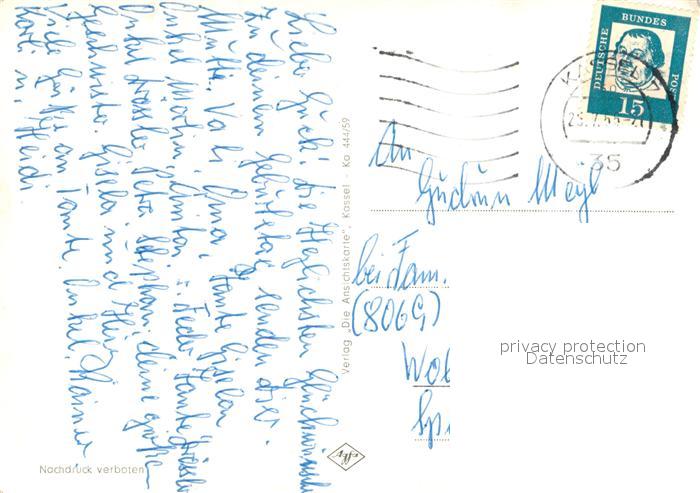 Liebe Gudi! Die Herzlichsten Glückwünsche
zu deinem Geburtstag senden dir:
Mutti, Va i, Oma, Tante Giselan
Onkel Martin, u. Tante
Onkel Petra, Stephan, deine große
Geschwister Gisela und
Viele Grüße an Tante. Onkel. Rainer
Karin, Heidi
Verlag „Die Ansichtskarte", Kassel - Ka 444/59
Nachdruck verboten
Agfa
DEUTSCHE BUNDESPOST
15
KASSEL
35
An
Gudrun Meyl
bei Fam.
(8069)
Wol
Sp
privacy protection
Datenschutz